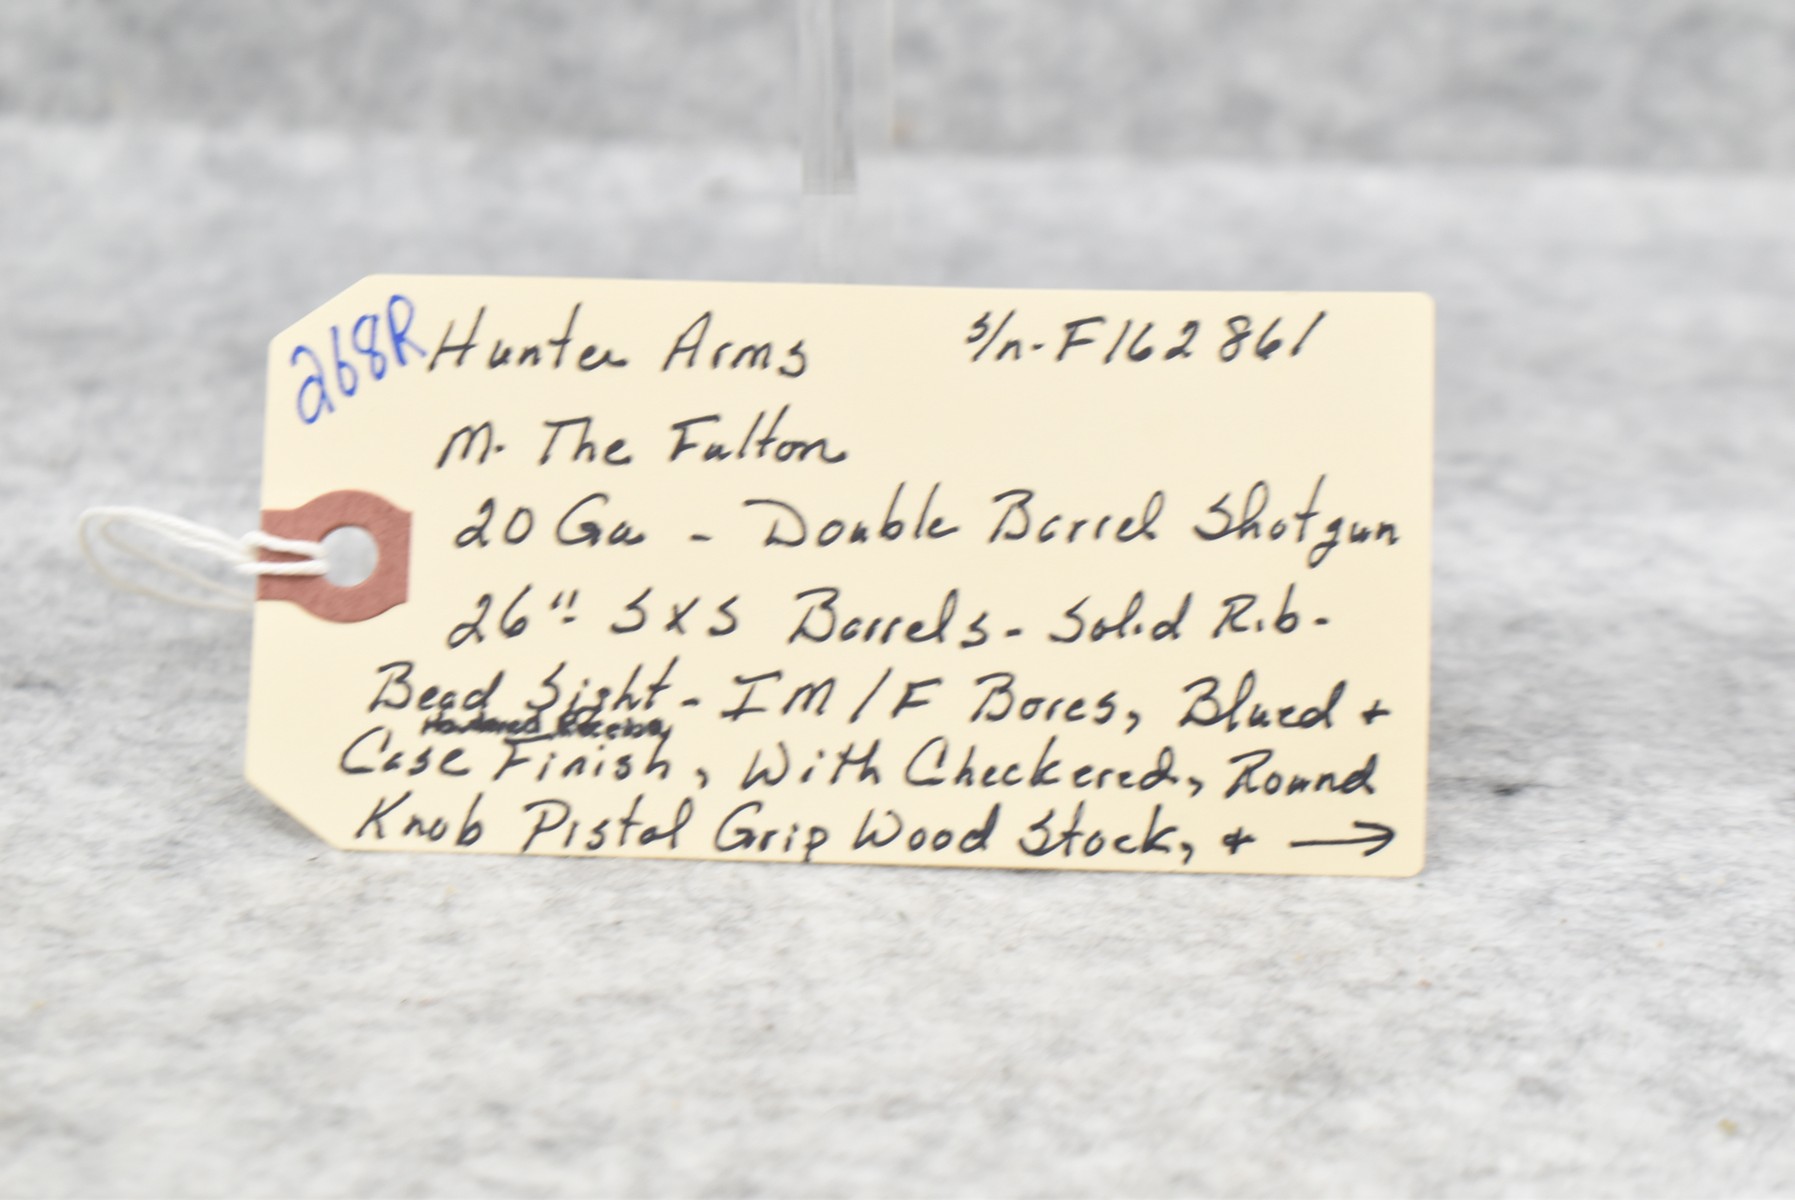 268R Hunter Arms s/n-F162861
M. The Fulton
20 Ga - Double Barrel Shotgun
26" SXS Barrels - Solid Rib -
Bead Sight - IM/F Bores, Blued +
Case Finish, With Checkered, Round
Knob Pistol Grip Wood Stock, + →